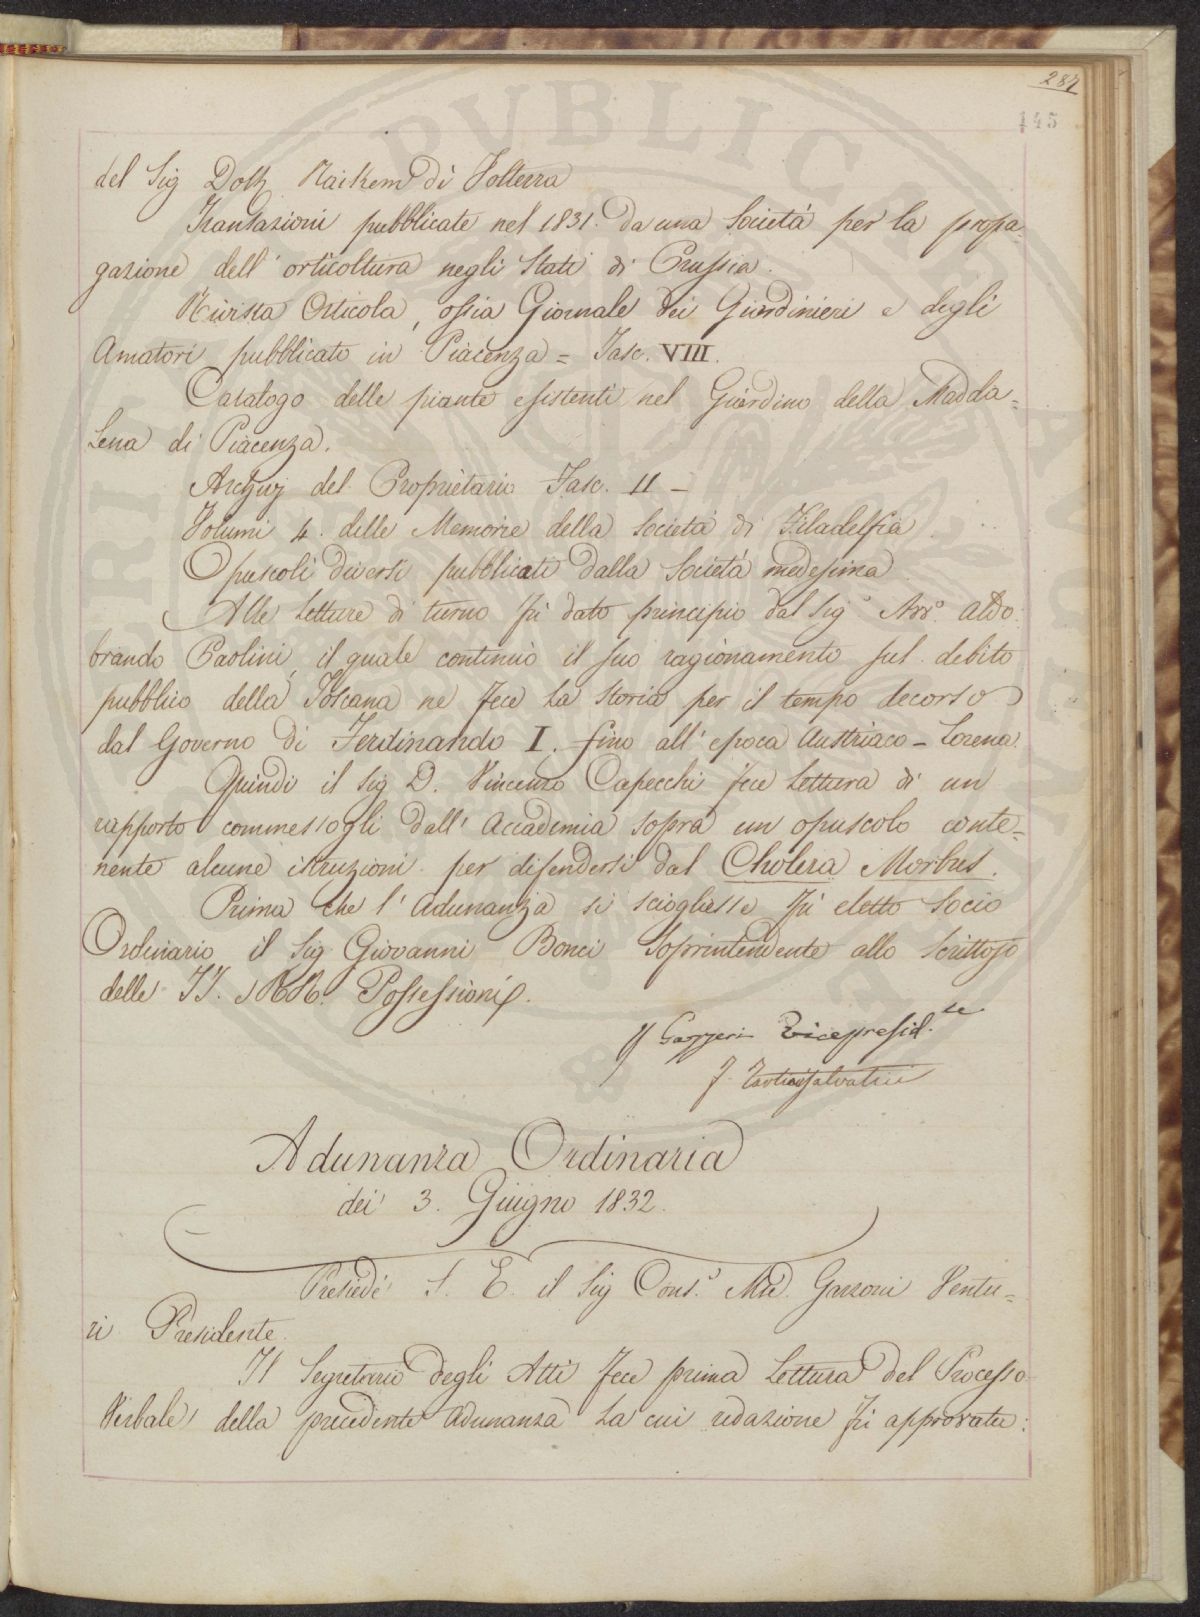 287
145
del Sig Dott Naikem di Volterra
Transazioni pubblicate nel 1831. da una Società per la propa=
gazione dell' orticoltura negli Stati di Prussia.
Rivista Orticola, ossia Giornale dei Giardinieri e degli
Amatori pubblicato in Piacenza = Fasc. VIII.
Catalogo delle piante esistenti nel Giardino della Madda=
lena di Piacenza.
Archivj del Proprietario Fasc. II –
Volumi 4. delle Memorie della Società di Filadelfia.
Opuscoli diversi pubblicati dalla Società medesima
Alle letture di turno fù dato principio dal Sig.e Avv.o Aldo
brando Paolini, il quale continuò il suo ragionamento sul debito
pubblico della Toscana ne fece la storia per il tempo decorso
dal Governo di Ferdinando I. fino all' epoca Austriaco – Lorena.
Quindi il Sig D. Vincenzo Capecchi fece lettura di un
rapporto commessogli dall' Accademia sopra un opuscolo conte=
nente alcune istruzioni per difendersi dal Cholera Morbus.
Prima che l' Adunanza si sciogliesse fù eletto Socio
Ordinario il Sig Giovanni Bonci Soprintendente allo Scrittojo
delle II. e RR. Possessioni.
Gazzeri Vicepresid.te
F. Tartini Salvatici
Adunanza Ordinaria
dei 3. Giugno 1832.
Presiedè S. E. il Sig Cons.e Md. Garzoni Ventu=
ri Presidente.
Il Segretario degli Atti fece prima lettura del Processo
Verbale della precedente Adunanza la cui redazione fù approvata:
PVBLICE